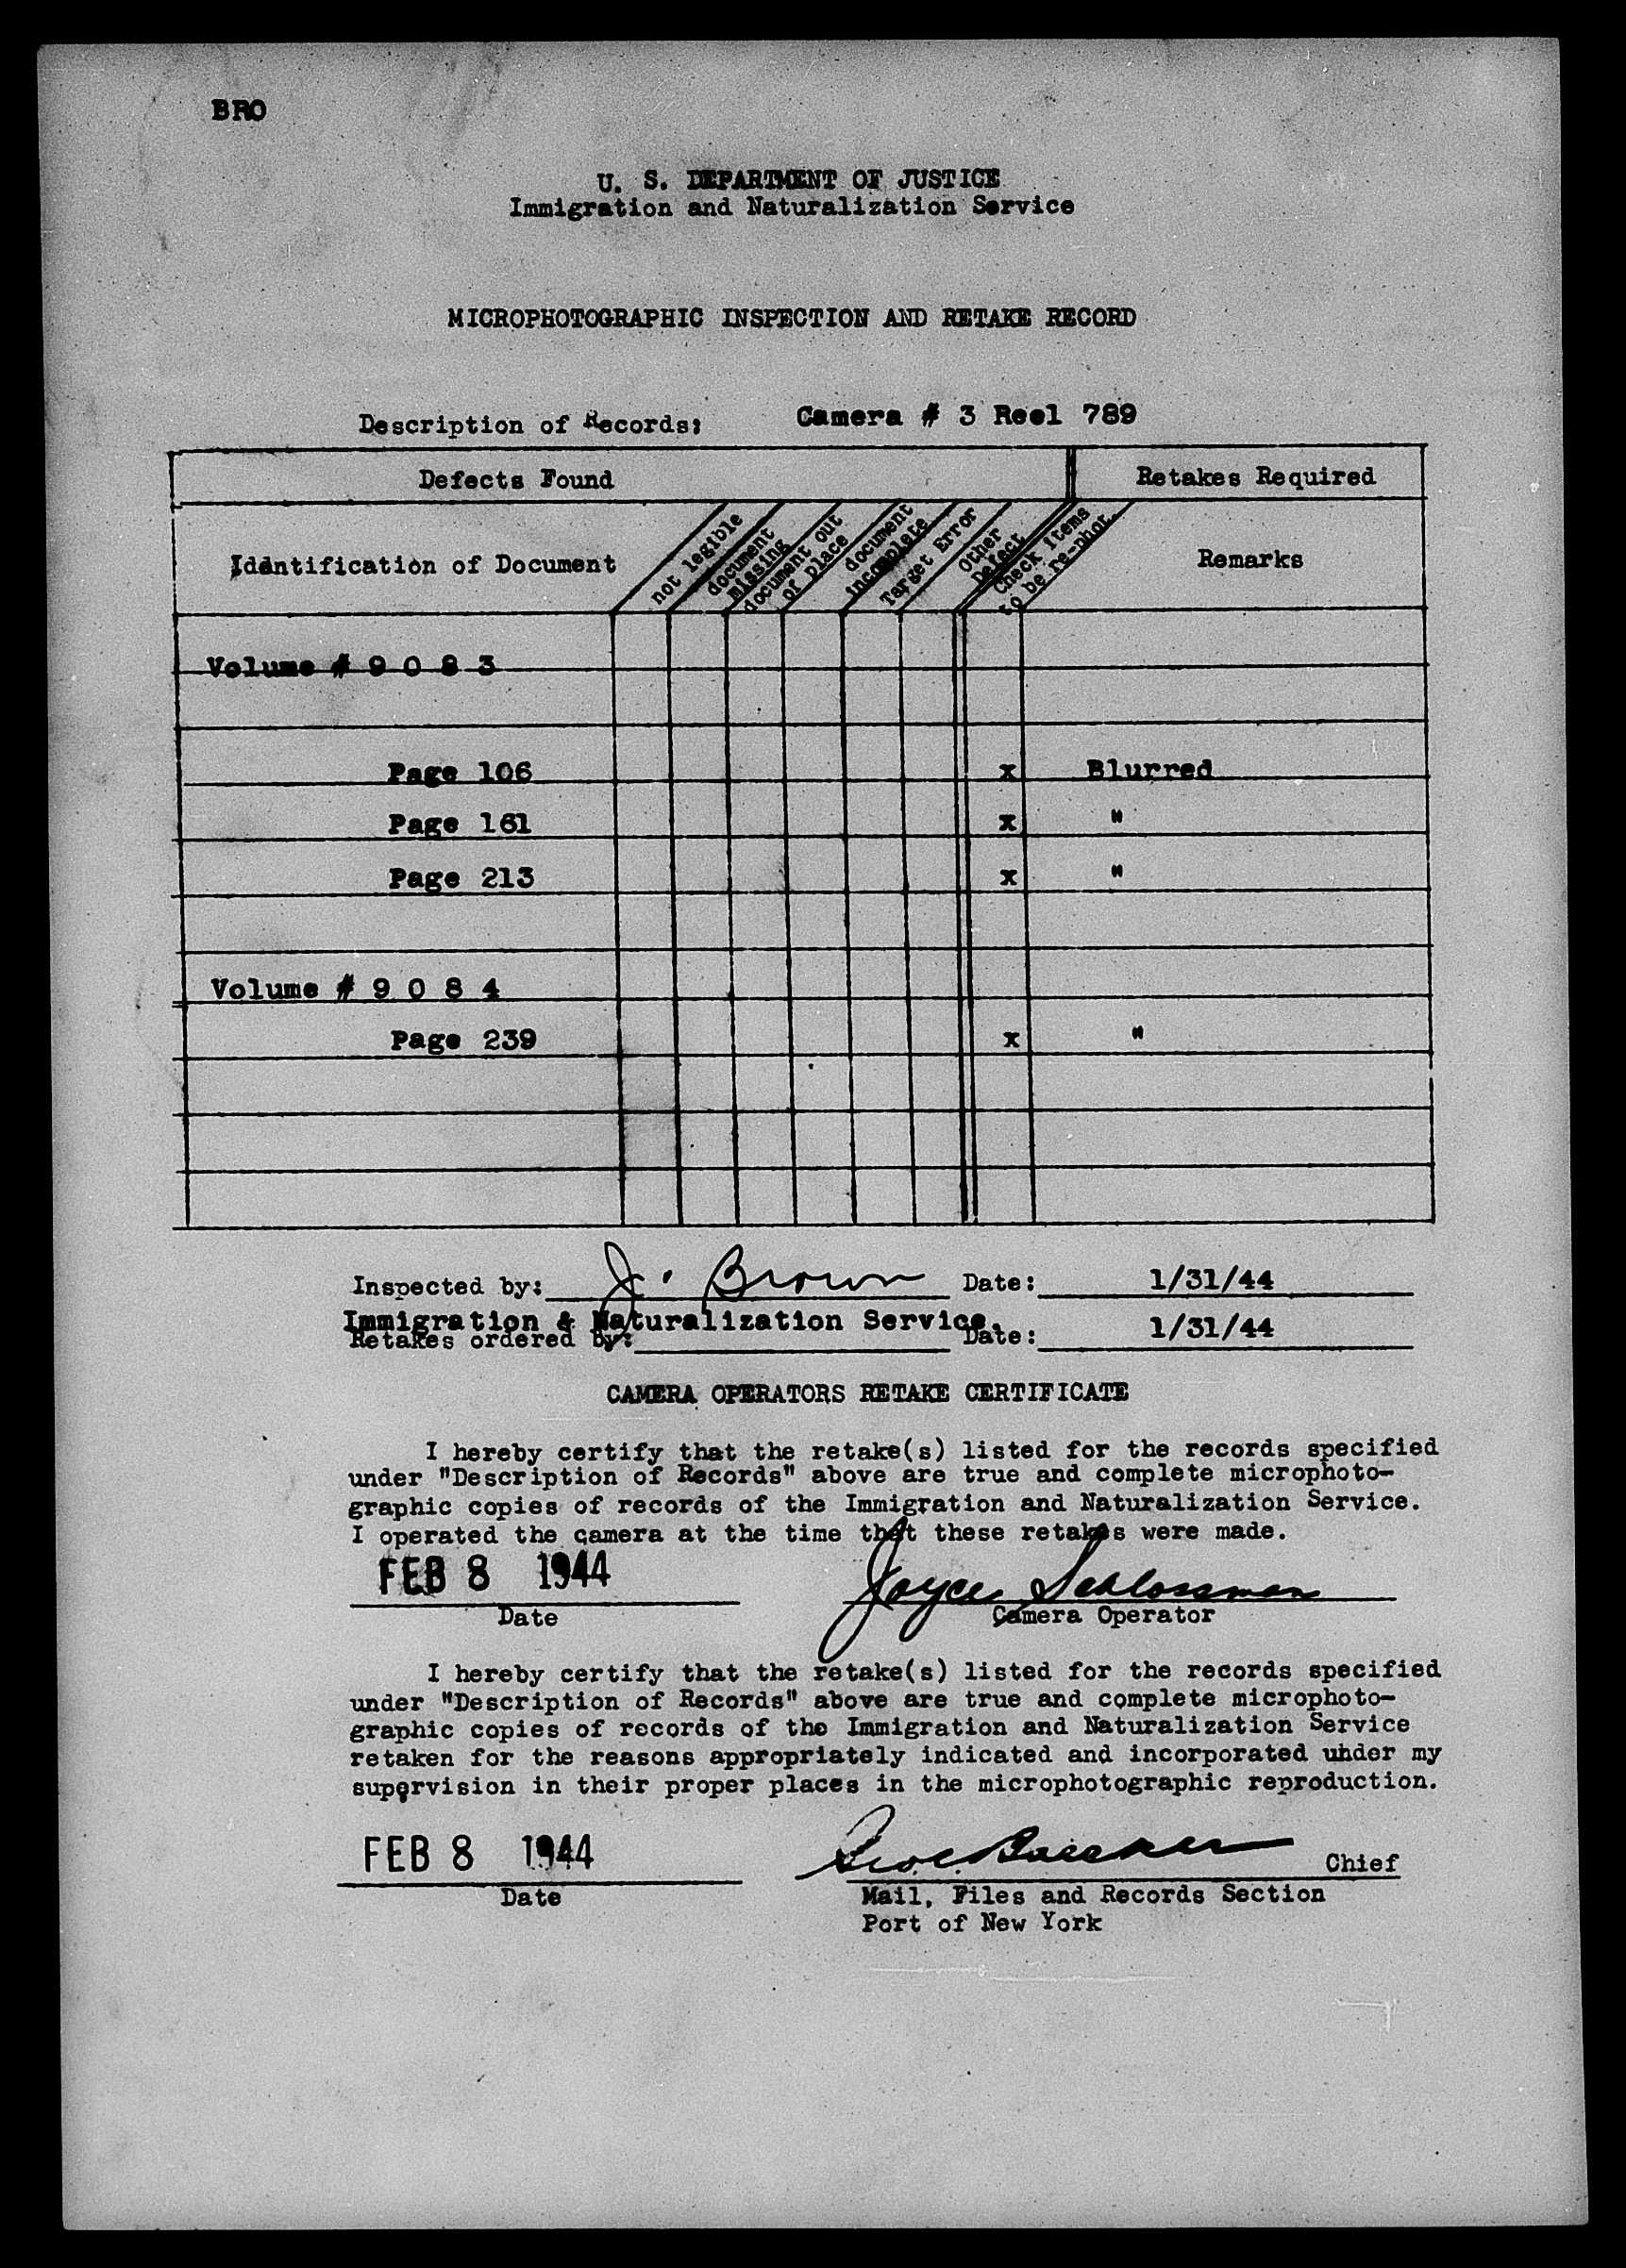 BRO
U. S. DEPARTMENT OF JUSTICE
Immigration and Naturalization Service
MICROPHOTOGRAPHIC INSPECTION AND RETAKE RECORD
Description of Records: Camera # 3 Reel 789
Defects Found Retakes Required
Identification of Document
not legible
document missing
document out of place
document incomplete
Target Error
Other Defect
Check items to be re-phot.
Remarks
Volume # 9 0 8 3
Page 106 x Blurred
Page 161 x "
Page 213 x "
Volume # 9 0 8 4
Page 239 x "
Inspected by: J. Brown Date: 1/31/44
Immigration & Naturalization Service.
Retakes ordered by: Date: 1/31/44
CAMERA OPERATORS RETAKE CERTIFICATE
I hereby certify that the retake(s) listed for the records specified
under "Description of Records" above are true and complete microphoto-
graphic copies of records of the Immigration and Naturalization Service.
I operated the camera at the time that these retakes were made.
FEB 8 1944 Joyce Schlossman
Date Camera Operator
I hereby certify that the retake(s) listed for the records specified
under "Description of Records" above are true and complete microphoto-
graphic copies of records of the Immigration and Naturalization Service
retaken for the reasons appropriately indicated and incorporated under my
supervision in their proper places in the microphotographic reproduction.
FEB 8 1944 Chief
Date Mail, Files and Records Section
Port of New York